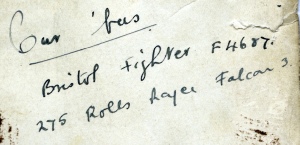 Our 'bus.
Bristol Fighter F4687.
275 Rolls Royce Falcon 3.